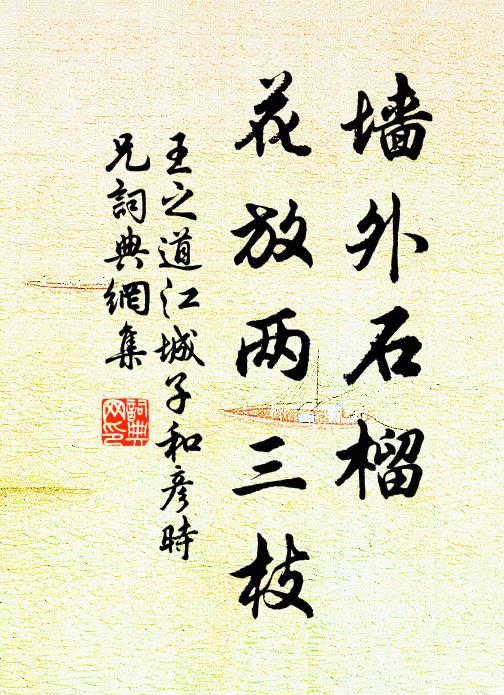 墙外石榴
花放两三枝
王之道江城子和彦時
兄詞典網集
詞典
网印